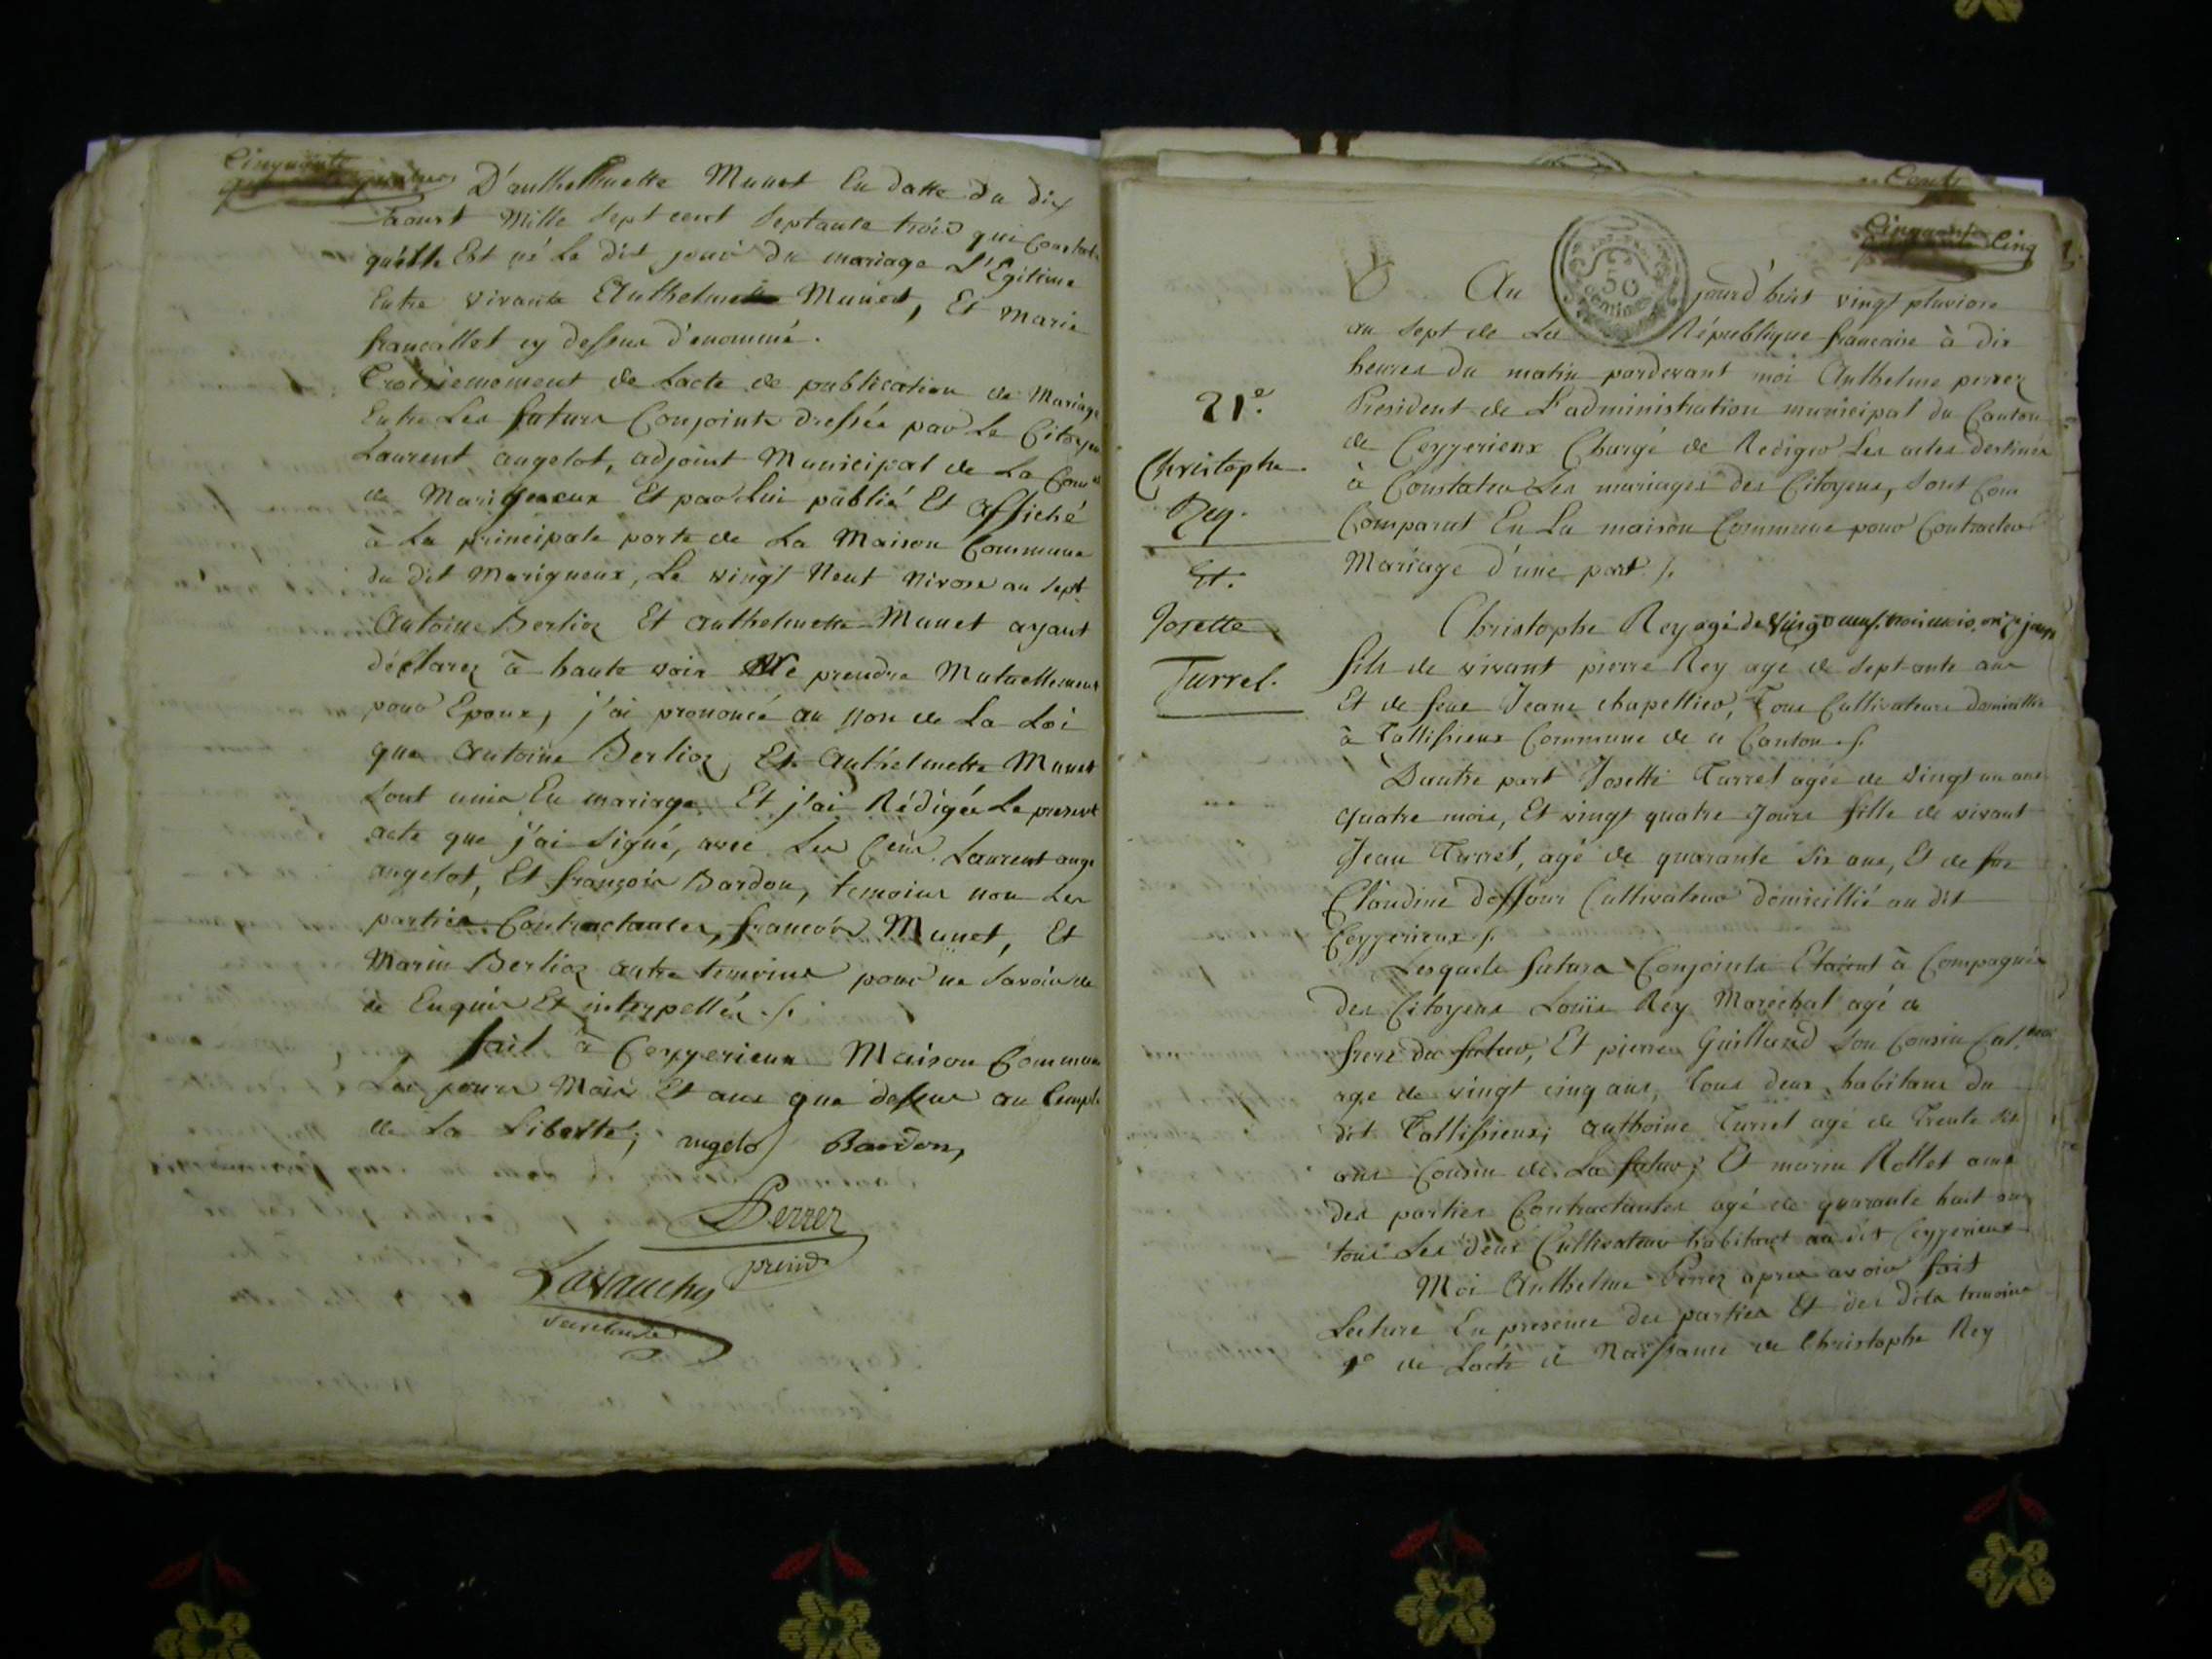 Cinquante
D'anthelmette Munet En datte du dix
aoust Mille Sept cent Septante trois qui Constate
qu'elle Est né Le dit jour du mariage L'Egitime
Entre vivants Anthelme Munet, Et Marie
francallet cy dessus d'enommé.
Troisiemement de Lacte de publication de Mariage
Entre Les futurs Conjoints dressée par Le Citoyen
Laurent angelot, adjoint Municipal de La Comne
de Marignieux Et par Lui publié Et affiché
à La principale porte de La Maison Commune
du dit Marignieux, Le vingt Neuf Nivose an Sept
Antoine Berlioz Et anthelmette Munet ayant
déclarez à haute voix Se prendre Mutuellement
pour Epoux, j'ai prononcé au Nom de La Loi
que Antoine Berlioz Et Anthelmette Munet
Sont unis En mariage Et j'ai Rédigée Le present
acte que j'ai Signé, avec Les Cens Laurent ange
angelot, Et françois Bardon, temoins non Les
parties Contractantes, francois Munet, Et
Marin Berlioz autre temoins pour ne Savoir de
ce Enquis Et interpellés ./.
fait à Ceyzerieux Maison Commune
Les jours Mois Et ans que dessus au temple
de La Liberté; angelot Bardon,
Perrez
presid
Lavauchy
Secretaire
Cinquante Cinq
50
centimes
Au jourd'huit vingt pluviose
an Sept de La République francaise à dix
heures du matin pardevant moi Anthelme perrez
21e.
President de L'administration municipal du Canton
de Ceyzerieux Chargé de Rediger Les actes destinés
Christophe
à Constater Les mariages des Citoyens, Sont Com
Rey.
Comparut En La maison Commune pour Contracter
Et.
Mariage d'une part ./.
Josette
Christophe Rey agé de Vingt neuf. trois mois, onze jours
Turrel.
fils de vivant pierre Rey age de Septante ans
Et de feue Jeane chapellier, Tous Cultivateurs domicillié
à Tallissieux Commune de ce Canton ./.
Dautre part Josette Turrel agée de vingt un ans
quatre mois, Et vingt quatre Jours fille de vivant
Jean Turrel, agé de quarante Six ans, Et de
Claudine deffour Cultivateur domicillié au dit
Ceyzerieux ./.
Lesquels futurs Conjoints Etaient à Compagnés
des Citoyens Louis Rey Maréchal agé de
frere du futur, Et pierre Guilland Son Cousin
age de vingt cinq ans, tous deux habitans du
dit Tallissieux; anthoine Turrel agé de Trente Six
ans Cousin de La futur; Et marin Rollet ami
des parties Contractantes agé de quarante huit ans
tous Les deux Cultivateur habitant au dit Ceyzerieux
Moi Anthelme Perrez apres avoir fait
Lecture En presence des parties Et des dits temoins
1o de Lacte de Naissance de Christophe Rey